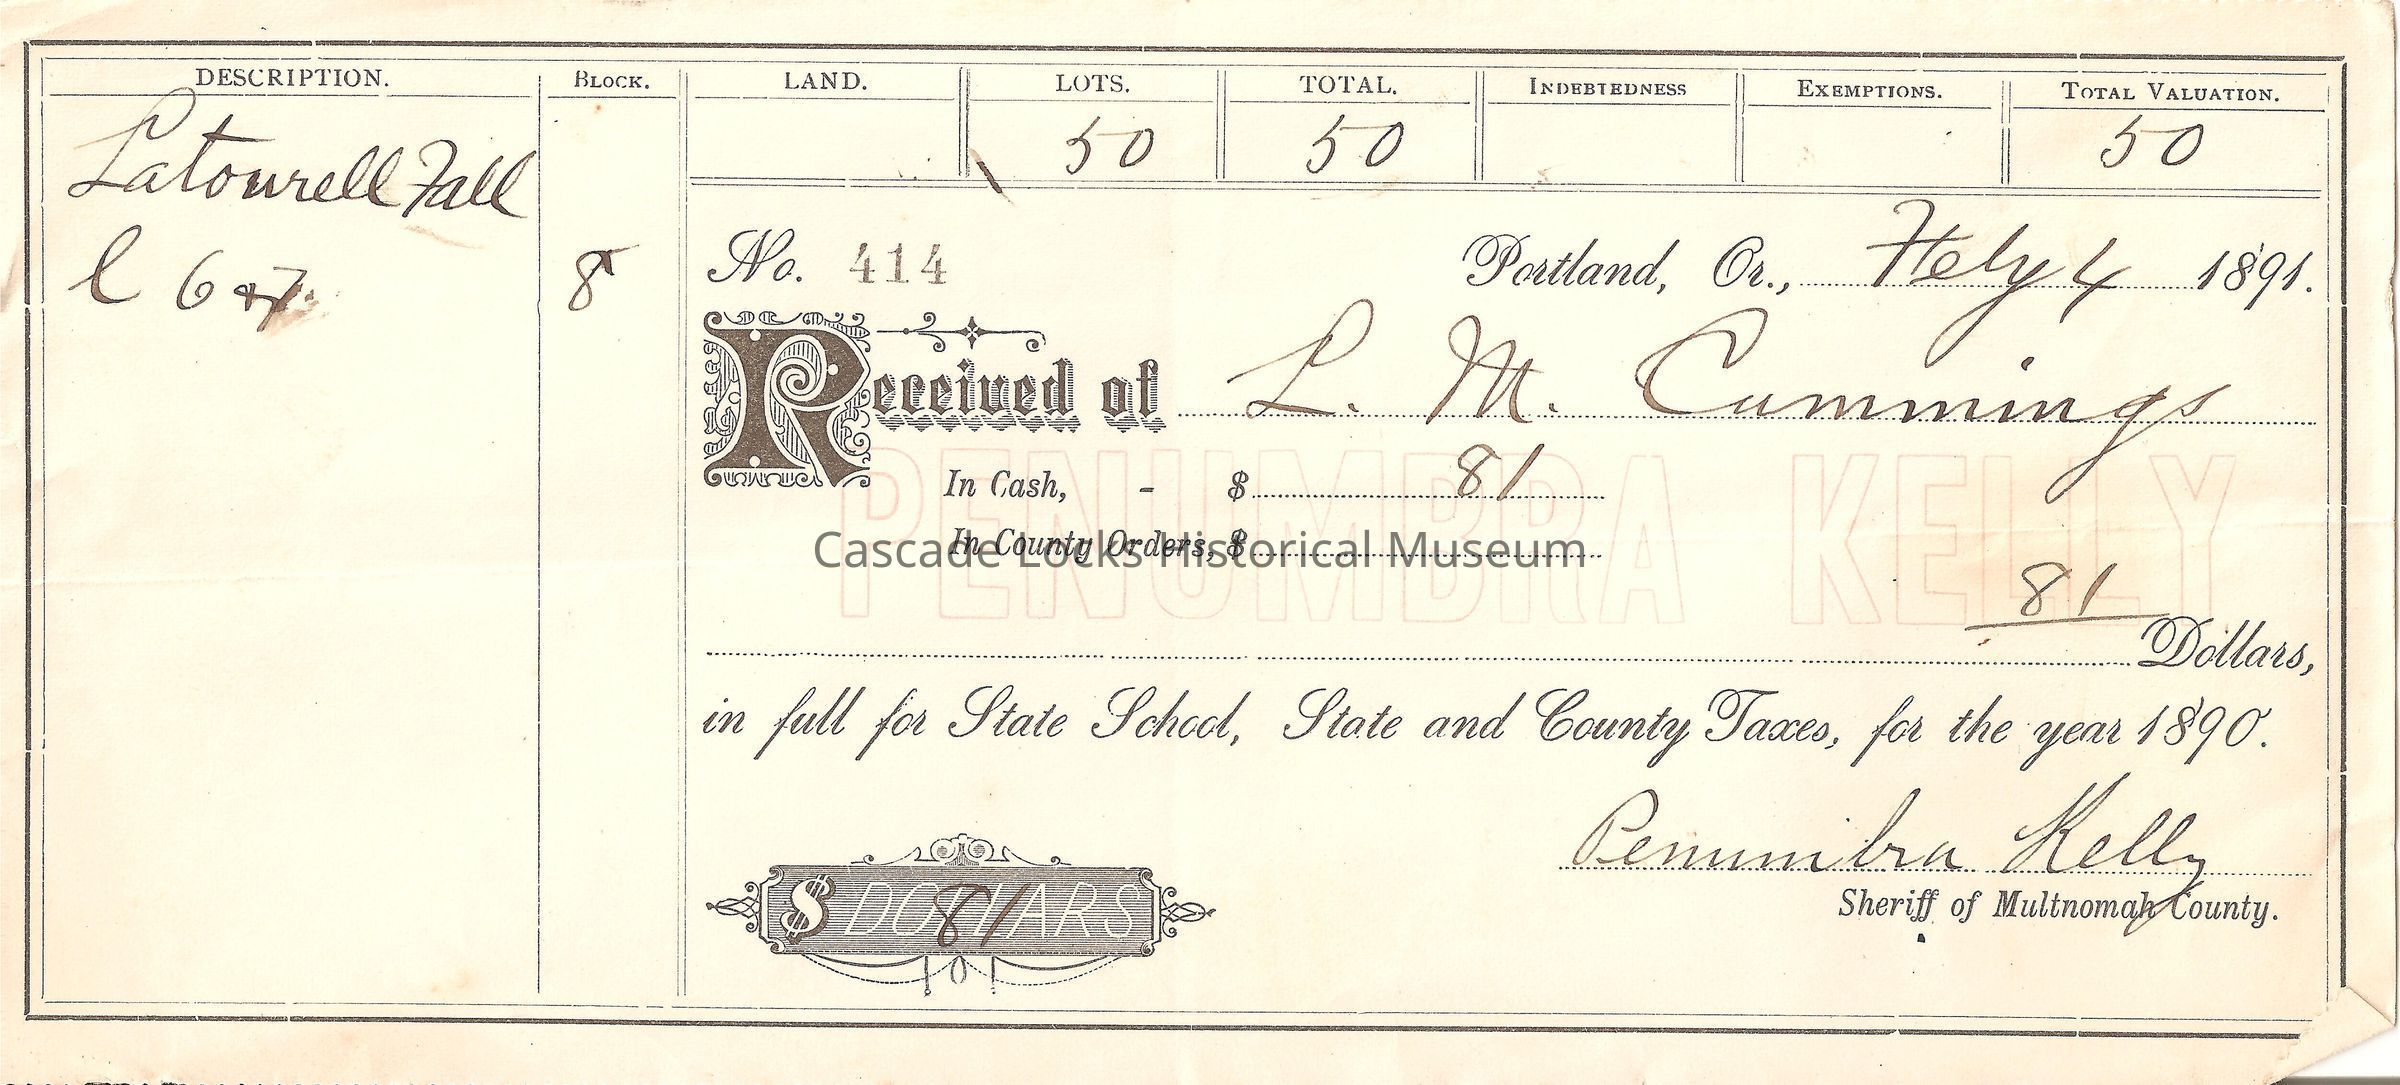 DESCRIPTION. BLOCK. LAND. LOTS. TOTAL. INDEBTEDNESS EXEMPTIONS. TOTAL VALUATION.
50 50 50
Latourell Fall
l 6 & 7. 8
No. 414 Portland, Or., Feby 4 1891.
Received of L. M. Cummings
In Cash, - $ 81
PENUMBRA KELLY
In County Orders, $
Cascade Locks Historical Museum
81
Dollars,
in full for State School, State and County Taxes, for the year 1890.
Penumbra Kelly
Sheriff of Multnomah County.
$ DOLLARS 81